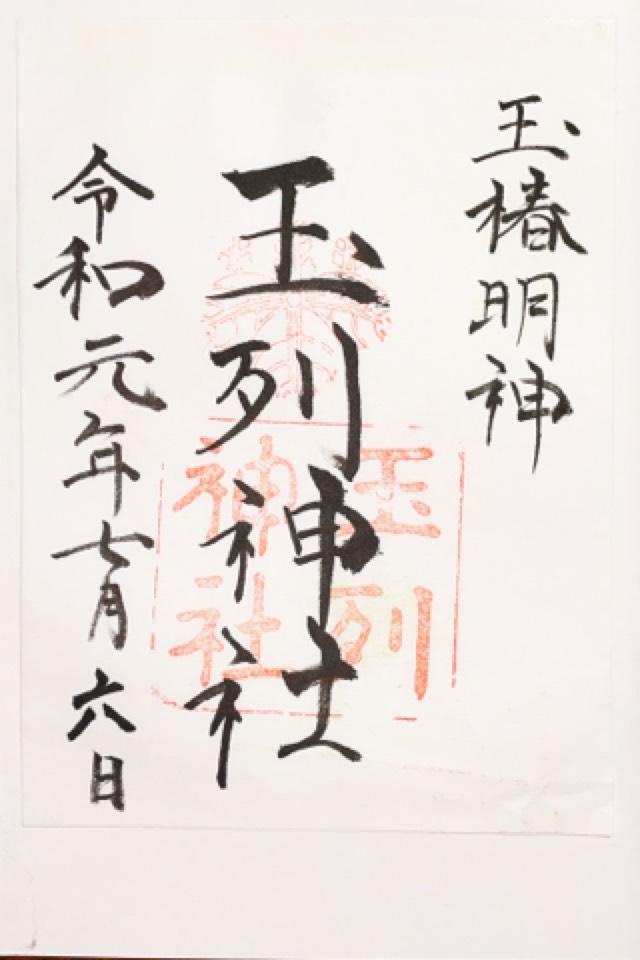 玉椿明神
玉列神社
玉列
神社
令和元年七月六日